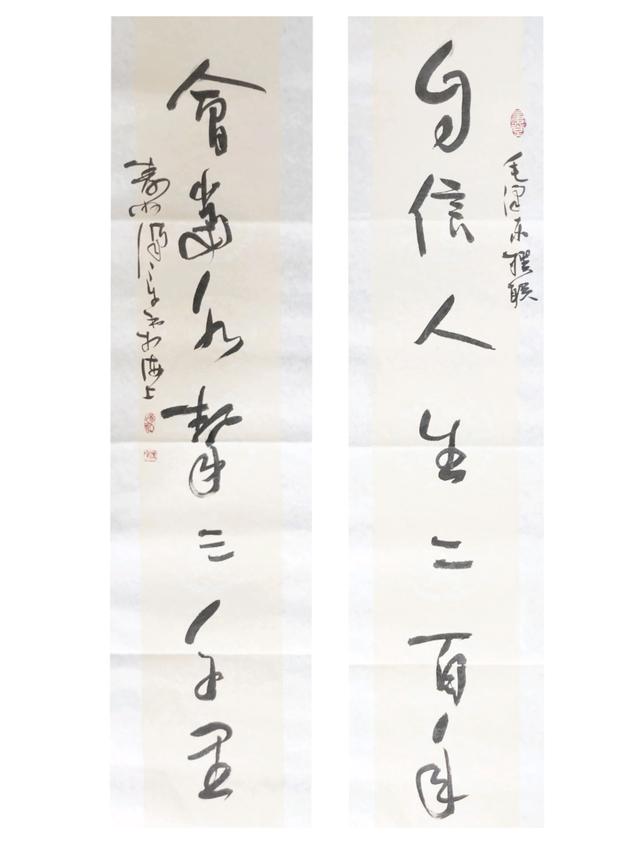 毛泽东撰联
自信人生二百年
會當水擊三千里
海上